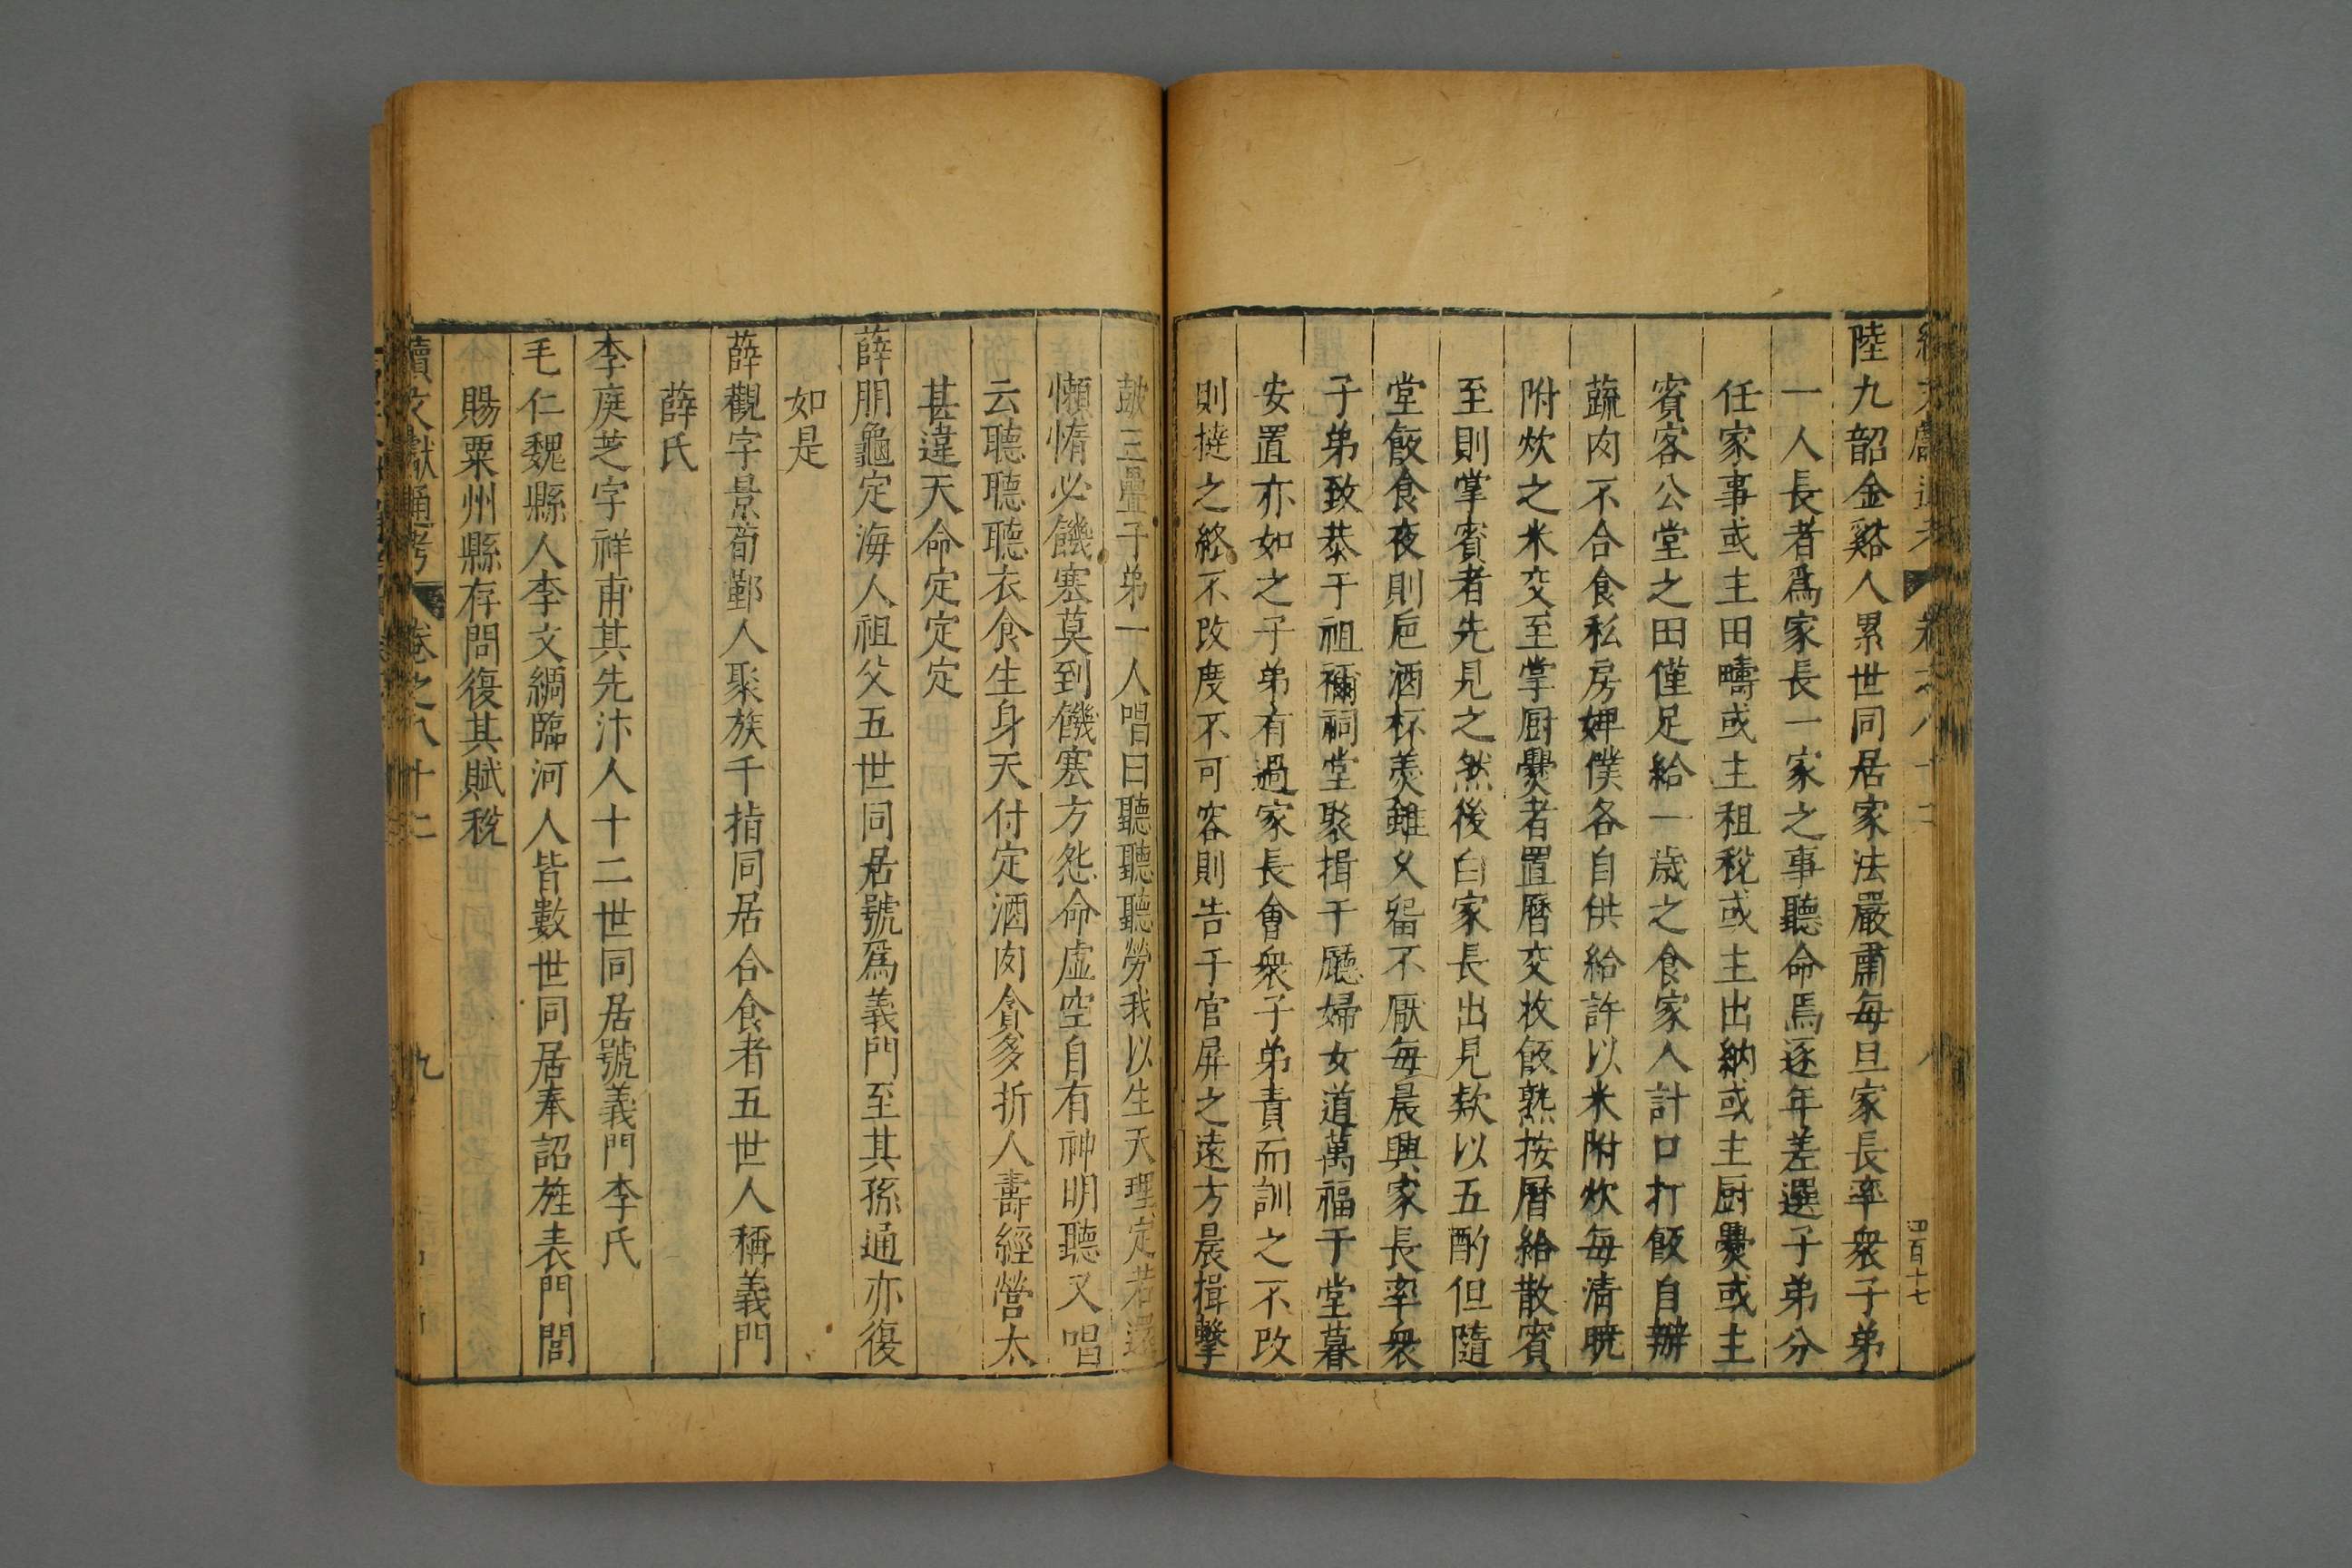 陸九韶金谿人累世同居家法嚴肅每旦家長率衆子弟
一人長者爲家長一家之事聽命焉逐年差選子弟分
任家事或主田疇或主租稅或主出納或主厨爨或主
賓客公堂之田僅足給一歲之食家人計口打飯自辦
蔬肉不合食私房婢僕各自供給許以米附炊每清曉
附炊之米交至掌厨爨者置曆交收飯熟按曆給散賓
至則掌賓者先見之然後白家長出見欵以五酌但隨
堂飯食夜則巵酒杯羹雖久留不厭每晨興家長率衆
子弟致恭于祖禰祠堂聚揖于廳婦女道萬福于堂暮
安置亦如之子弟有過家長會衆子弟責而訓之不改
則撻之終不改度不可容則告于官屏之遠方晨揖擊
皷三疊子弟一人唱曰聽聽聽勞我以生天理定若還
懶惰必饑寒莫到饑寒方怨命虛空自有神明聽又唱
云聽聽聽衣食生身天付定酒肉貪多折人壽經營太
甚違天命定定定
薛朋龜定海人祖父五世同居號爲義門至其孫通亦復
如是
薛觀字景荀鄞人聚族千指同居合食者五世人稱義門
薛氏
李庭芝字祥甫其先汴人十二世同居號義門李氏
毛仁魏縣人李文綢臨河人皆數世同居奉詔旌表門閭
賜粟州縣存問復其賦稅
續文獻通考 卷之八十二 九